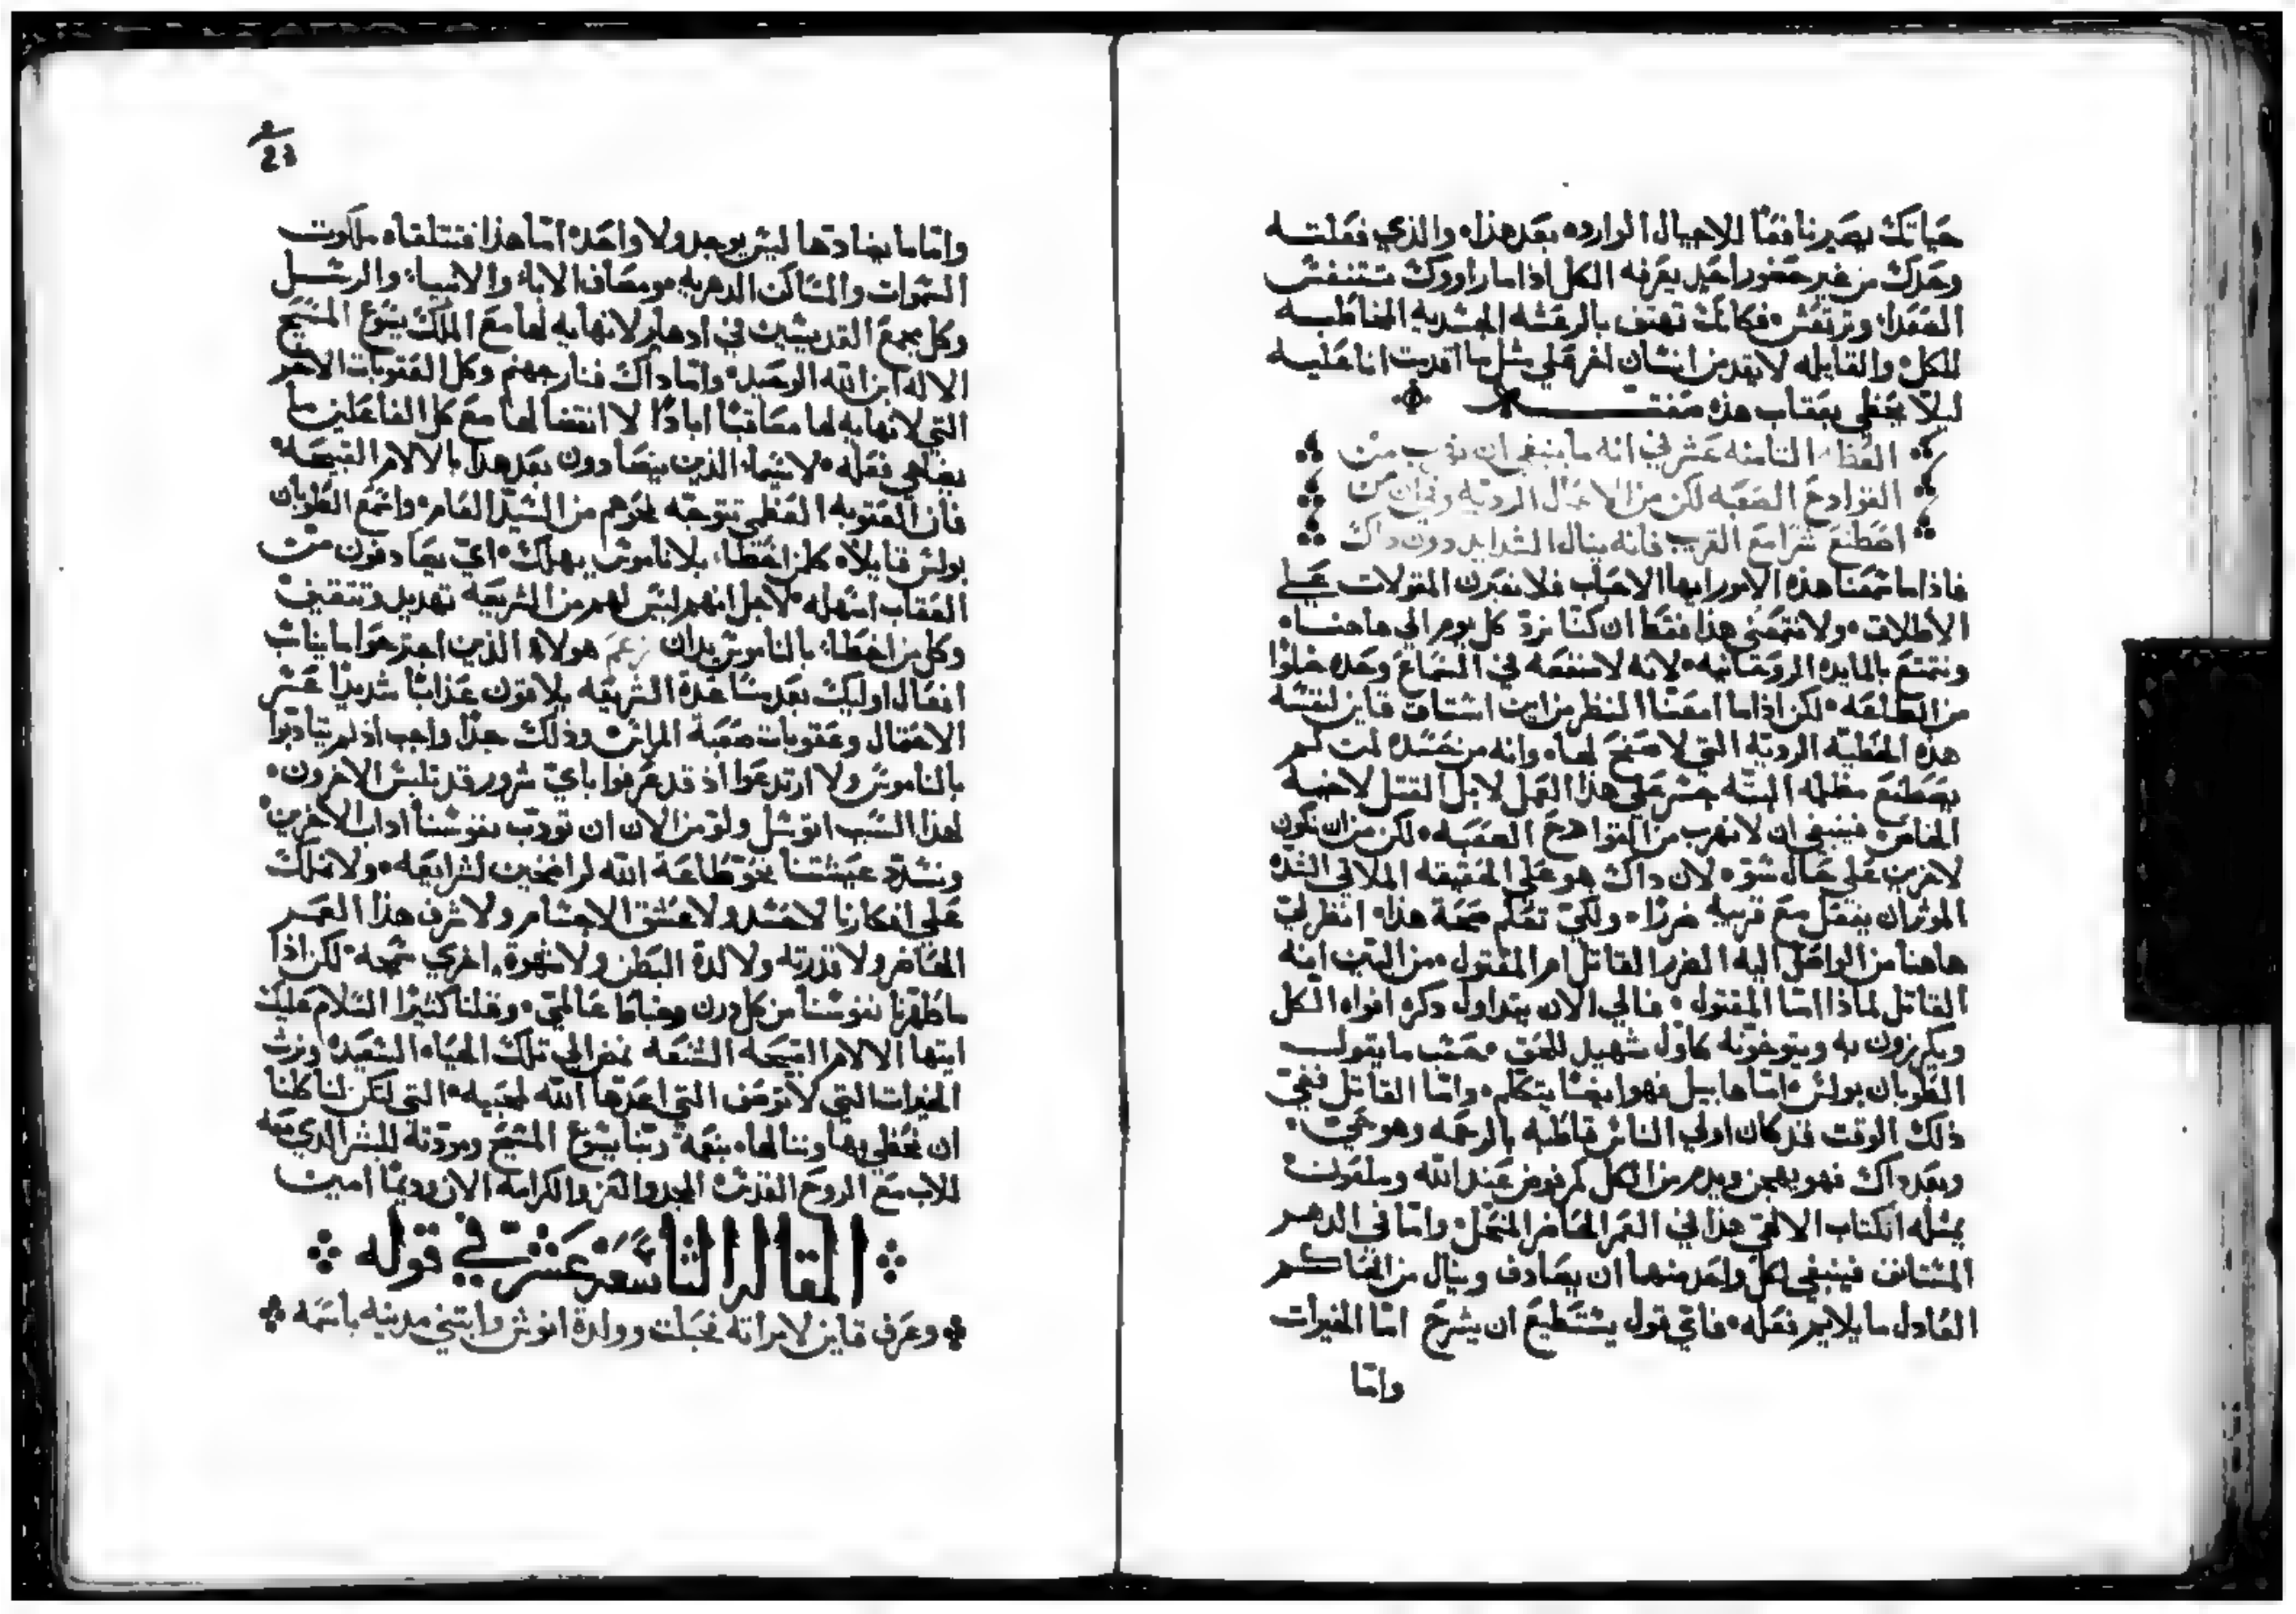 حياتك يصير نافعًا للاجيال الوارده بعد هذا، والذي فعلته
وحدك من غير حضور احد يعرفه الكل اذا ما راووك تتنفس
الصعدا، وترتعش، فكانك تهتف بالرعشه الجسديه المخاطبه
للكل، والقايله لا يقدمن انسان اخر علي مثل ما اقدمت انا عليه
ليلا يحظي بعقاب هذه صفته
العظه الثامنه عشر في انه ما ينبغي ان نهرب من
القوادح الصعبه لكن من الاعمال الرديه وان من
اصطنع شرًا مع القريب فانه ينال الشدايد دون داك
فاذا ما سمعنا هذه الامور ايها الاحباب فلا نعبرن المقولات علي
الاطلاق، ولا نتمعني هذا فقط ان كنا نرد كل يوم الي هاهنا،
ونتمتع بالمايده الروحانيه، لانه لا منفعه في السماع وحده خلوًا
من الطاعه، لكن اذا ما امعنا النظر من اين استاق قاين لنفسه
هذه الخطيه الرديه التي لا صفح لها، وانه من حسده لمن لم
يصطنع مظلمه البته جسر علي هذا الفعل لاجل القتل لاخيه
الخاص، فينبغي ان لا نهرب من القوادح الصعبه، لكن من ان نكون
لاخرين علي حال سوء لان داك هو علي الحقيقه الملاقي الشده
الموثر ان يفعل مع قريبه ضررًا، ولكي تعلم صحة هذا، انظر لي
هاهنا من الواصل اليه الضرر القاتل ام المقتول، من البين انه
القاتل لماذا اما المقتول، فالي الان يتداول دكره افواه الكل
ويكرزون به ويتوخونه كاول شهيد للحق، حسب ما يقول
الطوبان بولس، اما هابيل فهو ايضًا يتكلم، واما القاتل ففي
ذلك الوقت قد كان اولي الناس قاطبه بالرحمه وهو حي،
وبعد داك فهو يهجن ويدم من الكل كمرفوض عند الله وملعون
يمثله الكتاب الالهي هذا في العمر الحاضر المنحل، واما في الدهر
المستانف فينبغي لكل واحد منهما ان يصادف وينال من الحاكم
العادل ما يلايم فعله، فاي قول يستطيع ان يشرح اما الخيرات
واما
واما ما يضادتها ليس يوجد ولا واحده، اما هذا فتتلقاه ملكوت
السموات والمساكن الدهريه، ومصاف الاباء والانبياء والرسل
وكل مجمع القديسين في ادهار لا نهايه لها مع الملك يسوع المسيح
الاله ابن الله الوحيد، واما داك فنار جهنم وكل العقوبات الاخر
التي لا نهايه لها معاقبًا ابادًا لا انقضا لها مع كل الفاعلين ما
يضاهي فعله، لاسيما الذين يتصادون بعد هذا بالالام القبيحه،
فان العقوبه العظمي تتوجه نحوهم من السيد العام، واسمع الطوبان
بولس قايلا، كل من اخطاء بلا ناموس يهلك، اي يصادفون من
العقاب اسهله، لاجل انهم ليس لهم من الشريعه تهديد وتثقيف
وكل من اخطاء بالناموس يدان زعم هولاء الذين اجترحوا ما يناسب
افعال اوليك بعد مساعدة الشريعه يلاقون عذابًا شديدًا عسر
الاحتمال وعقوبات صعبة المراس وذلك جدًا واجب اذ لم يتادبوا
بالناموس ولا ارتدعوا اذ قد عرفوا باي شرور قد تلبس الاخرون،
لهذا السبب اتوسل ولو من الان ان نودب نفوسنا اداب الاخرين
ونسدد عيشتنا نحو طاعة الله لراضخين لشرايعه، ولا نملك
علي افكارنا لا حسد ولا عشق الاجسام ولا شرف هذا العمر
الحاضر ولا قدرته ولا لذة البطن ولا شهوة اخري سمجه، لكن اذا
ما طهرنا نفوسنا من كل درن وخباط عالمي، وقلنا كثيرًا السلام عليك
ايتها الالام القبيحه الشنعه نحضر الي تلك الحياه السعيده ونرث
الخيرات التي لا توصف التي اعدها الله لمحبيه، التي لتكن لنا كلنا
ان نحظي بها وننالها، بنعمة ربنا يسوع المسيح ومودته للبشر الدي معه
للاب مع الروح القدس المجد والعز والكرامه الان ودايمًا امين
المقاله التاسعه عشر في قوله
وعرف قاين لامراته فحبلت وولدة انوش وابتني مدينه باسمه